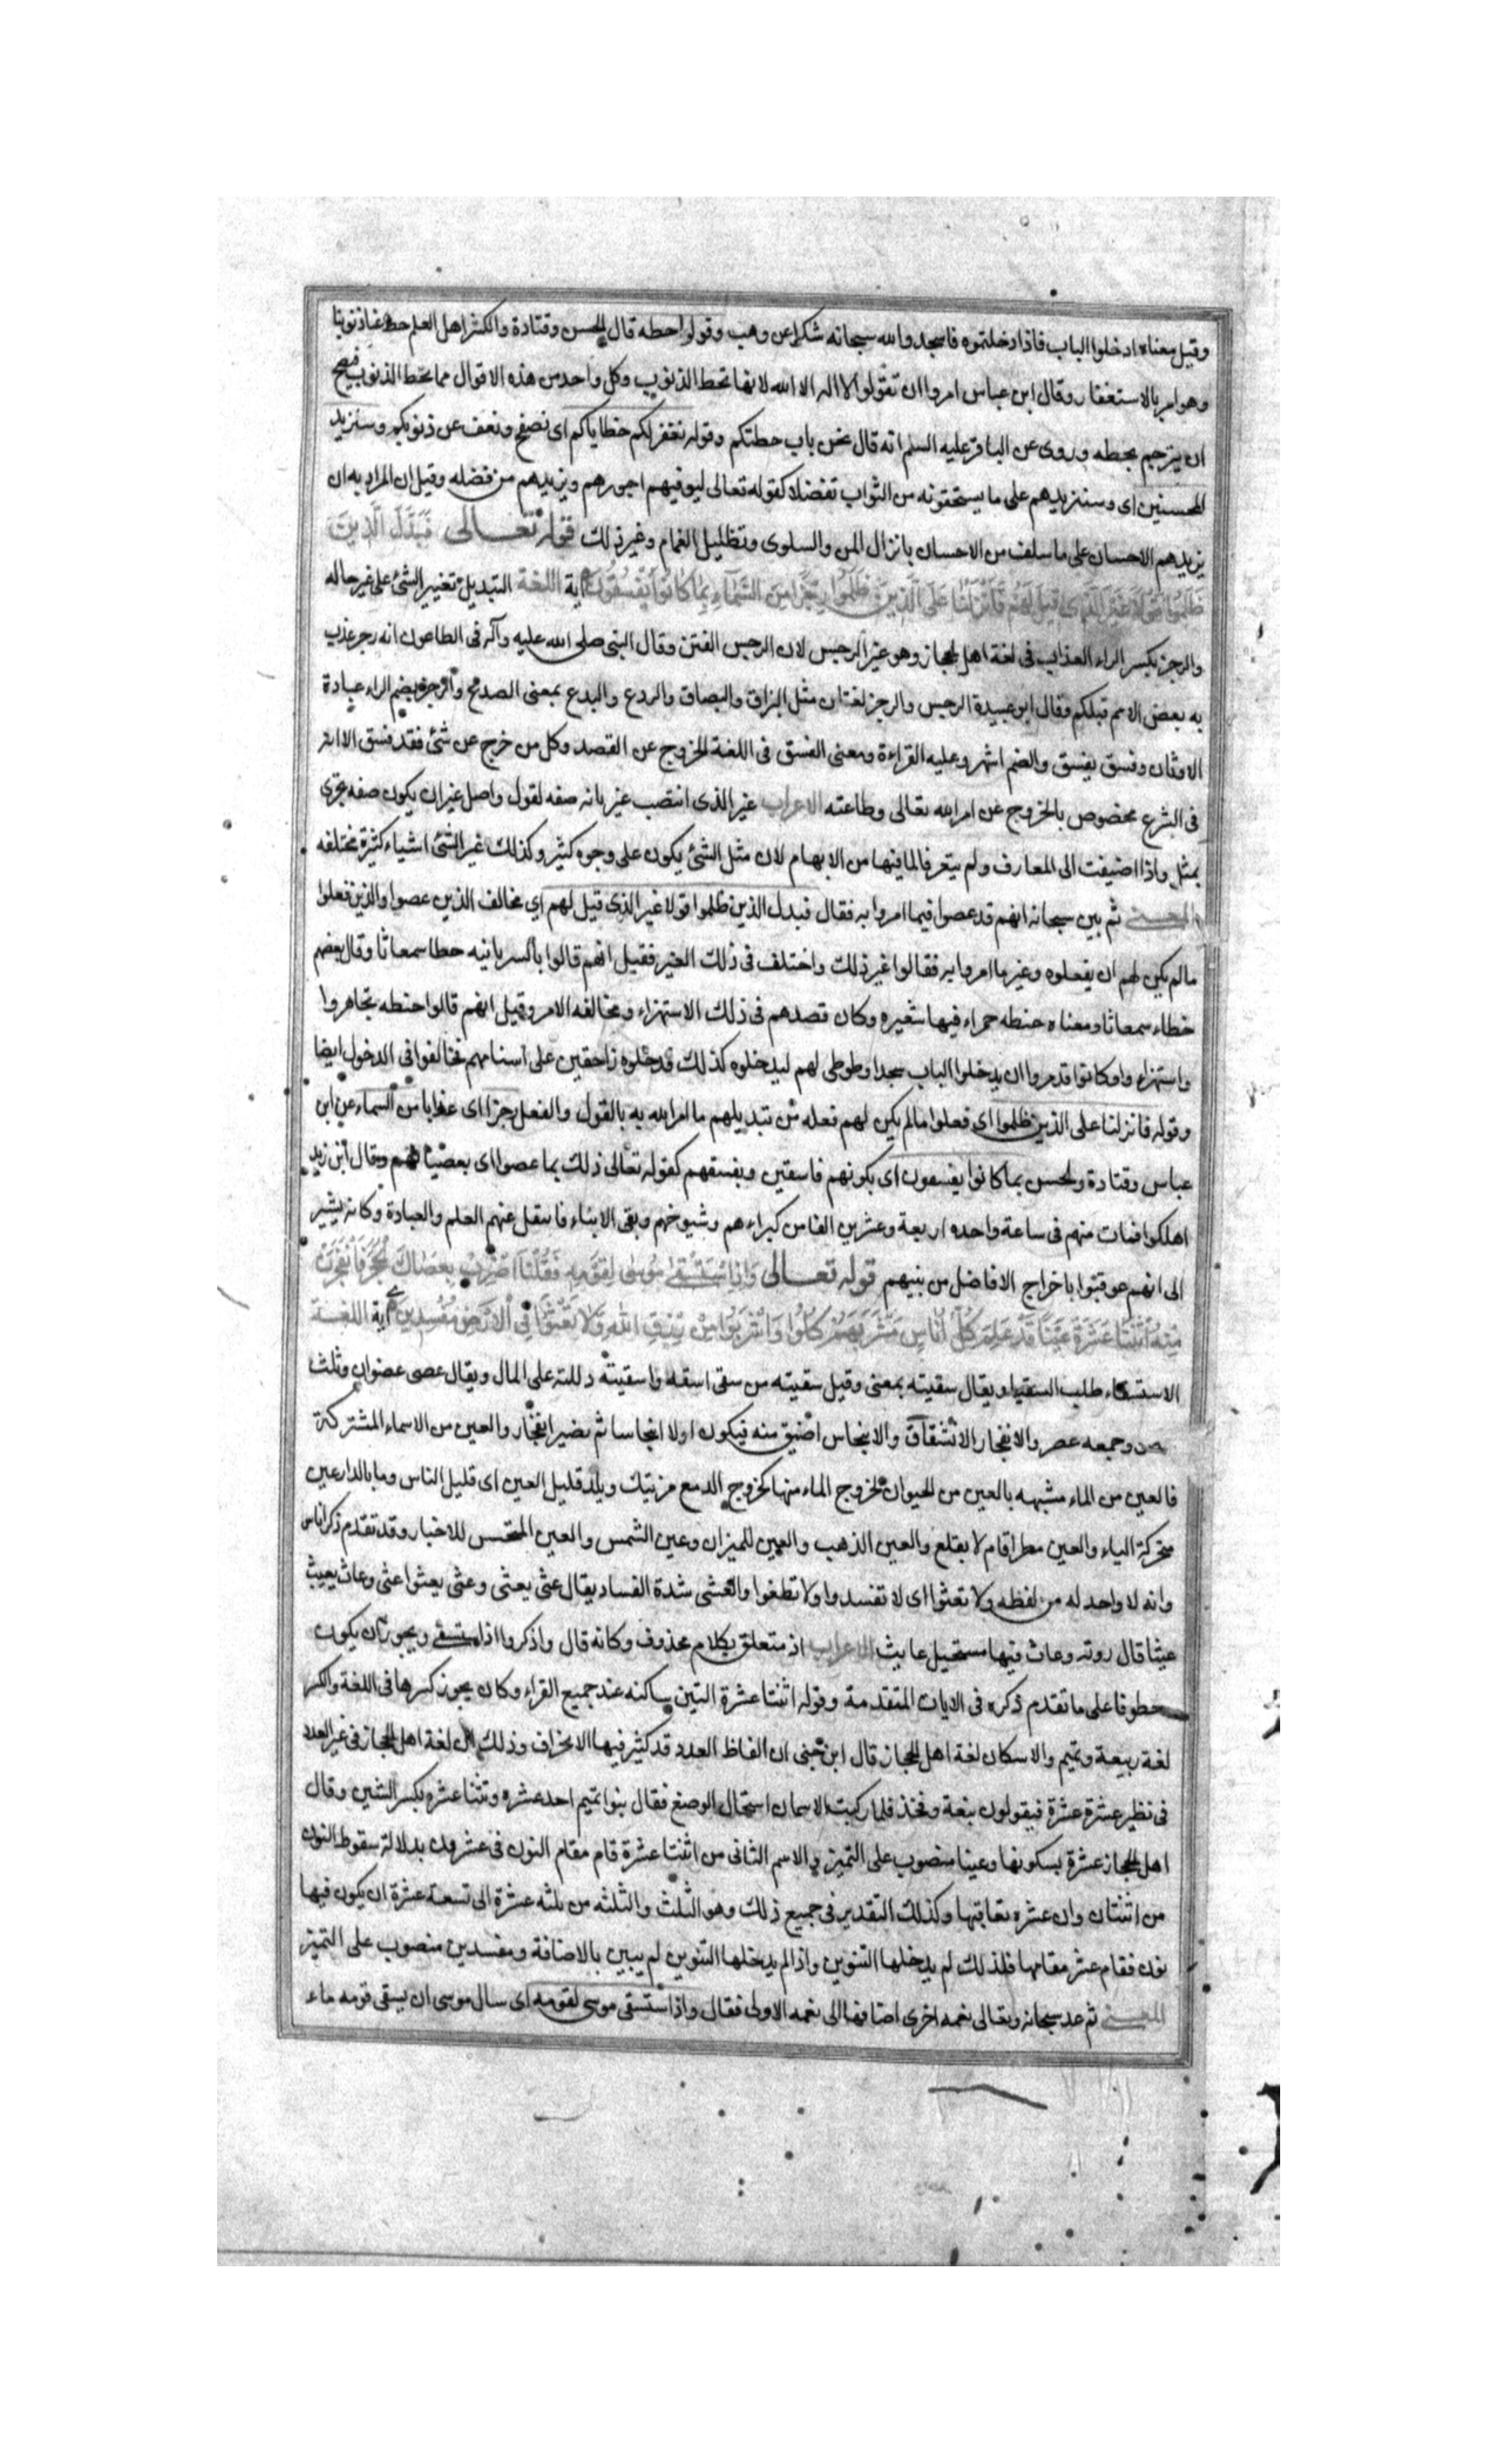 وقيل معناه ادخلوا الباب فاذا دخلتموه فاسجدوا لله سبحانه شكرا عن وهب وقولوا حطه قال الحسن وقتادة واكثر اهل العلم حط عنا ذنوبنا
وهو امر بالاستغفار وقال ابن عباس امروا ان تقولوا لا اله الا الله لانها تحط الذنوب وكل واحد من هذه الاقوال مما يحط الذنوب فيصح
ان يترجم بحطه وروى عن الباقر عليه السلم انه قال نحن باب حطتكم وقوله نغفر لكم خطاياكم اى نصفح ونعف عن ذنوبكم وسنزيد
المحسنين اى وسنزيدهم على ما يستحقونه من الثواب تفضلا كقوله تعالى ليوفيهم اجورهم ويزيدهم من فضله وقيل ان المراد به ان
يزيدهم الاحسان على ما سلف من الاحسان بانزال المن والسلوى وتظليل الغمام وغير ذلك قوله تعالى فَبَدَّلَ الَّذِينَ
ظَلَمُوا قَوْلًا غَيْرَ الَّذِى قِيلَ لَهُمْ فَاَنْزَلْنَا عَلَى الَّذِينَ ظَلَمُوا رِجْزًا مِنَ السَّمَآءِ بِمَا كَانُوا يَفْسُقُونَ آية اللغة التبديل تغيير الشئ على غير حاله
والرجز بكسر الراء العذاب فى لغة اهل الحجاز وهو غير الرجس لان الرجس النتن وقال النبى صلى الله عليه وآله فى الطاعون انه رجز عذب
به بعض الامم قبلكم وقال ابو عبيدة الرجس والرجز لغتان مثل البزاق والبصاق والردع والبدع بمعنى الصدمح والرجز بضم الراء عبادة
الاوثان وفسق يفسق والضم اشهر وعليه القراءة ومعنى الفسق فى اللغة الخروج عن القصد وكل من خرج عن شئ فقد فسق الا انه
فى الشرع مخصوص بالخروج عن امر الله تعالى وطاعته الاعراب غير الذى انتصب غير بانه صفه لقول واصل غير ان يكون صفه تجرى
بمثل واذا اضيفت الى المعارف ولم يتعرف لما فيها من الابهام لان مثل الشئ يكون على وجوه كثير وكذلك غير الشئ اشياء كثيرة مختلفه
المعنى ثم بين سبحانه انهم قد عصوا فيما امروا به فقال فبدل الذين ظلموا قولا غير الذى قيل لهم اي مخالف الذين عصوا والذين فعلوا
مالم يكن لهم ان يفعلوه وغير ما امروا به فقالوا غير ذلك واختلف فى ذلك الغير فقيل انهم قالوا بالسريانيه حطا سمعاثا وقال بعضهم
خطاء سمعاثا ومعناه حنطه حمراء فيها شعيره وكان قصدهم فى ذلك الاستهزاء ومخالفه الامر وقيل انهم قالوا حنطه تجاهروا
واستهزاء وكانوا قد امروا ان يدخلوا الباب سجدا وطوطى لهم ليدخلوه كذلك فدخلوه زاحفين على استاههم فخالفوا فى الدخول ايضا
وقوله فانزلنا على الذين ظلموا اى فعلوا مالم يكن لهم فعله من تبديلهم ما امر الله به بالقول والفعل رجزا اى عذابا من السماء عن ابن
عباس وقتادة والحسن بما كانوا يفسقون اى بكونهم فاسقين وبفسقهم كقوله تعالى ذلك بما عصوا اى بعصيانهم وقال ابن زيد
اهلكوا فمات منهم فى ساعة واحده اربعة وعشرين الفا من كبراءهم وشيوخهم وبقى الابناء فانتقل عنهم العلم والعبادة وكانه يشير
الى انهم عوقبوا باخراج الافاضل من بينهم قوله تعالى وَاِذِ اسْتَسْقَى مُوسَى لِقَوْمِهِ فَقُلْنَا اضْرِبْ بِعَصَاكَ الْحَجَرَ فَانْفَجَرَتْ
مِنْهُ اثْنَتَا عَشْرَةَ عَيْنًا قَدْ عَلِمَ كُلُّ اُنَاسٍ مَشْرَبَهُمْ كُلُوا وَاشْرَبُوا مِنْ رِزْقِ اللهِ وَلَا تَعْثَوْا فِى الْاَرْضِ مُفْسِدِينَ آية اللغة
الاستسقاء طلب السقيا ويقال سقيته بمعنى وقيل سقيته من سقى اسقه واسقيته دللته على المال ويقال عصى عصوان وثلث
وجمعه عصر والانفجار الانشقاق والانبجاس اضيق منه فيكون اولا انبجاسا ثم يصير انفجار والعين من الاسماء المشتركة
فالعين من الماء مشبهه بالعين من الحيوان لخروج الماء منها كخروج الدمع من يتيك وبلد قليل العين اى قليل الناس وما بالدار عين
متحركة الياء والعين مطر اقام لا يقلع والعين الذهب والعين للميزان وعين الشمس والعين المتجسس للاخبار وقد تقدم ذكر اناس
وانه لا واحد له من لفظه ولا تعثوا اى لا تفسدوا ولا تطغوا والعثى شدة الفساد يقال عثى يعثى وعثى يعثوا عثى وعاث يعيث
عيثا قال روبه وعاث فيها مستحيل عايث الاعراب اذ متعلق بكلام محذوف وكانه قال واذكروا اذ استسقى ويجوز ان يكون
معطوفا على ما تقدم ذكره فى الايات المتقدمة وقوله اثنتا عشرة الشين ساكنه عند جميع القراء وكان يجوز كسرها فى اللغة والكسر
لغة ربيعة وتميم والاسكان لغة اهل الحجاز قال ابن جنى ان الفاظ العدد قد كثير فيها الانحراف وذلك ان لغة اهل الحجاز فى غير العدد
فى نظير عشرة عشرة فيقولون نبعة وفخذ فلما ركبت الاسمان استحال الوضع فقال بنوا تميم احد عشره وثنتا عشره بكسر الشين وقال
اهل الحجاز عشرة بسكونها وعينا منصوب على التميز والاسم الثانى من اثنتا عشرة قام مقام النون فى عشرون بدلالة سقوط النون
من اثنتان وان عشره تعاقبها وكذلك التقدير فى جميع ذلك وهو الثلث والثلثه من ثلثه عشرة الى تسعة عشرة ان يكون فيها
نون فقام عشر مقامها فلذلك لم يدخلها التنوين واذا لم يدخلها التنوين لم يبين بالاضافة ومفسدين منصوب على التميز
المعنى ثم عد سبحانه وتعالى نعمه اخرى اضافها الى نعمه الاولى فقال واذ استسقى موسى لقومه اى سال موسى ان يسقى قومه ماء